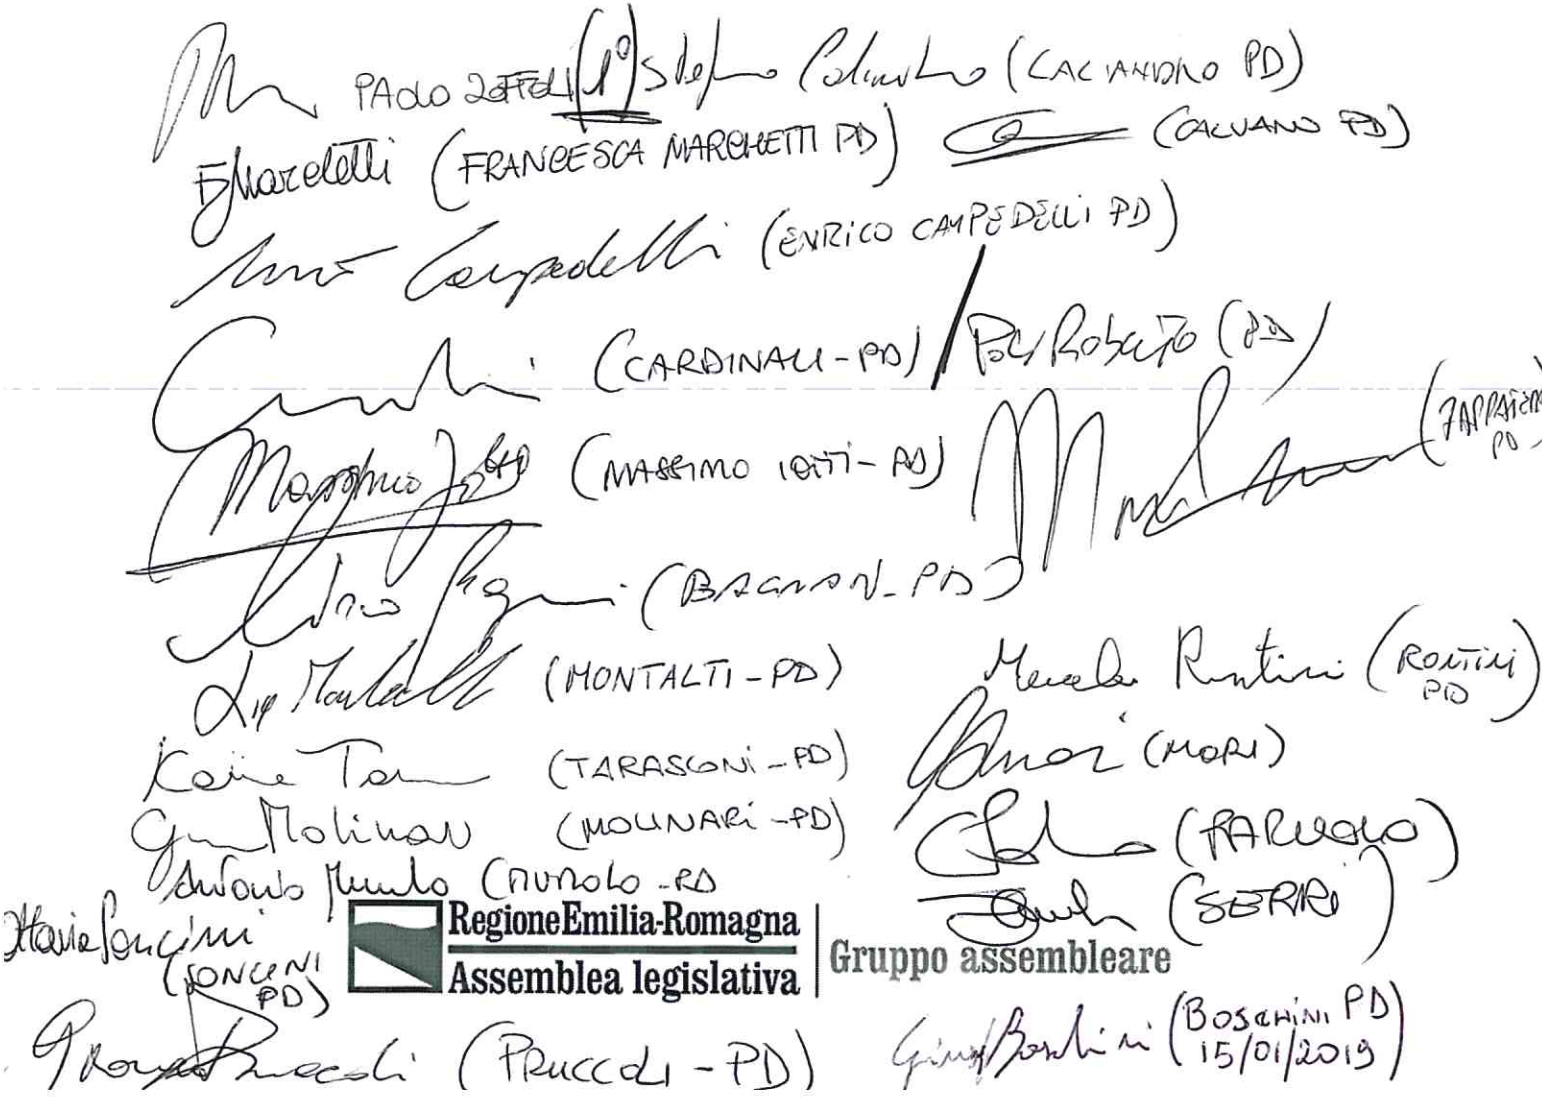 PAOLO ZOFFOLI (1°) Stefano Caliandro (CALIANDRO PD)
F Marchetti (FRANCESCA MARCHETTI PD) (CALVANO PD)
Campedelli (ENRICO CAMPEDELLI PD)
(CARDINALI-PD) / Poli Roberto (PD)
Massimo Iotti (MASSIMO IOTTI-PD) (ZAPPATER PD-
(BAGNARI-PD)
Lia Montalti (MONTALTI-PD) Manuela Rontini (RONTINI PD)
(TARASCONI-PD) Mori (MORI)
Molinari (MOLINARI-PD) (PARUOLO)
Antonio Mumolo (MUMOLO-PD (SERRI)
Ottavia Soncini
(SONCINI PD)
RegioneEmilia-Romagna
Assemblea legislativa
Gruppo assembleare
Pruccoli (PRUCCOLI-PD) Boschini (BOSCHINI PD
15/01/2019)